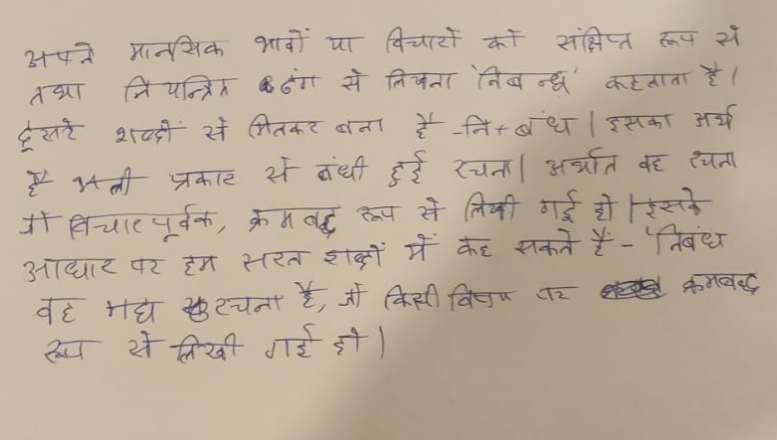 अपने मानसिक भावों या विचारों को संक्षिप्त रूप से
तथा नियन्त्रित ढंग से लिखना 'निबन्ध' कहलाता है।
दूसरे शब्दों से मिलकर बना है -नि+बंध। इसका अर्थ
है भली प्रकार से बंधी हुई रचना। अर्थात वह रचना
जो विचारपूर्वक, क्रमबद्ध रूप से लिखी गई हो। इसके
आधार पर हम सरल शब्दों में कह सकते हैं - 'निबंध
वह गद्य रचना है, जो किसी विषय पर क्रमबद्ध
रूप से लिखी गई हो।